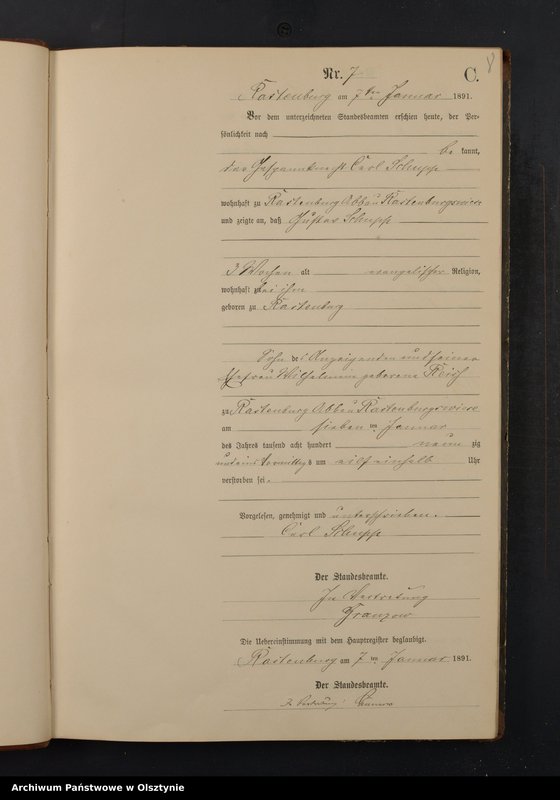 8
Nr. 7
C.
Rastenburg am 7ten Januar 1891.
Vor dem unterzeichneten Standesbeamten erschien heute, der Per-
sönlichkeit nach
be kannt,
der Gespannknecht Carl Schupp
wohnhaft zu Rastenburg Abbau Rastenburgswiese
und zeigte an, daß Gustav Schupp
3 Wochen alt evangelischer Religion,
wohnhaft bei ihm
geboren zu Rastenburg
Sohn des Anzeigenden und seiner
Ehefrau Wilhelmine geborene Reich
zu Rastenburg Abbau Rastenburgswiese
am sieben ten Januar
des Jahres tausend acht hundert neun zig
und eins Vormittags um eilf einhalb Uhr
verstorben sei.
Vorgelesen, genehmigt und unterschrieben.
Carl Schupp
Der Standesbeamte.
In Vertretung
Die Uebereinstimmung mit dem Hauptregister beglaubigt.
Rastenburg am 7ten Januar 1891.
Der Standesbeamte.
In Vertretung
Archiwum Państwowe w Olsztynie